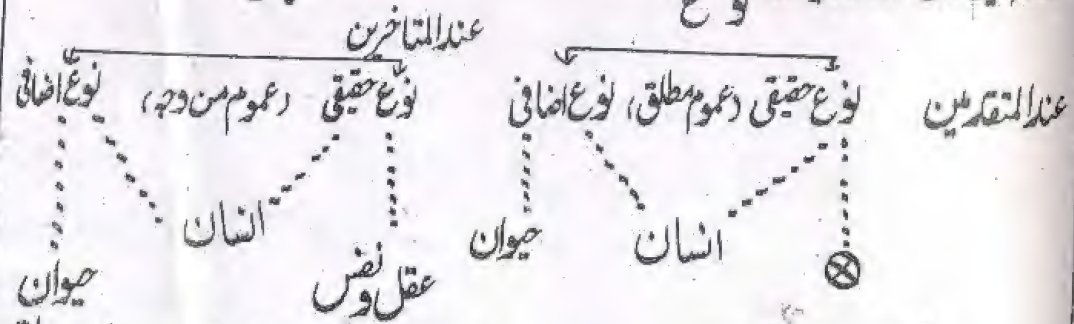 نوع
عند المتاخرین
عند المتقدمین نوع حقیقی (عموم مطلق) نوع اضافی نوع حقیقی (عموم من وجہ) نوع اضافی
⊗ انسان حیوان عقل و نفس انسان حیوان